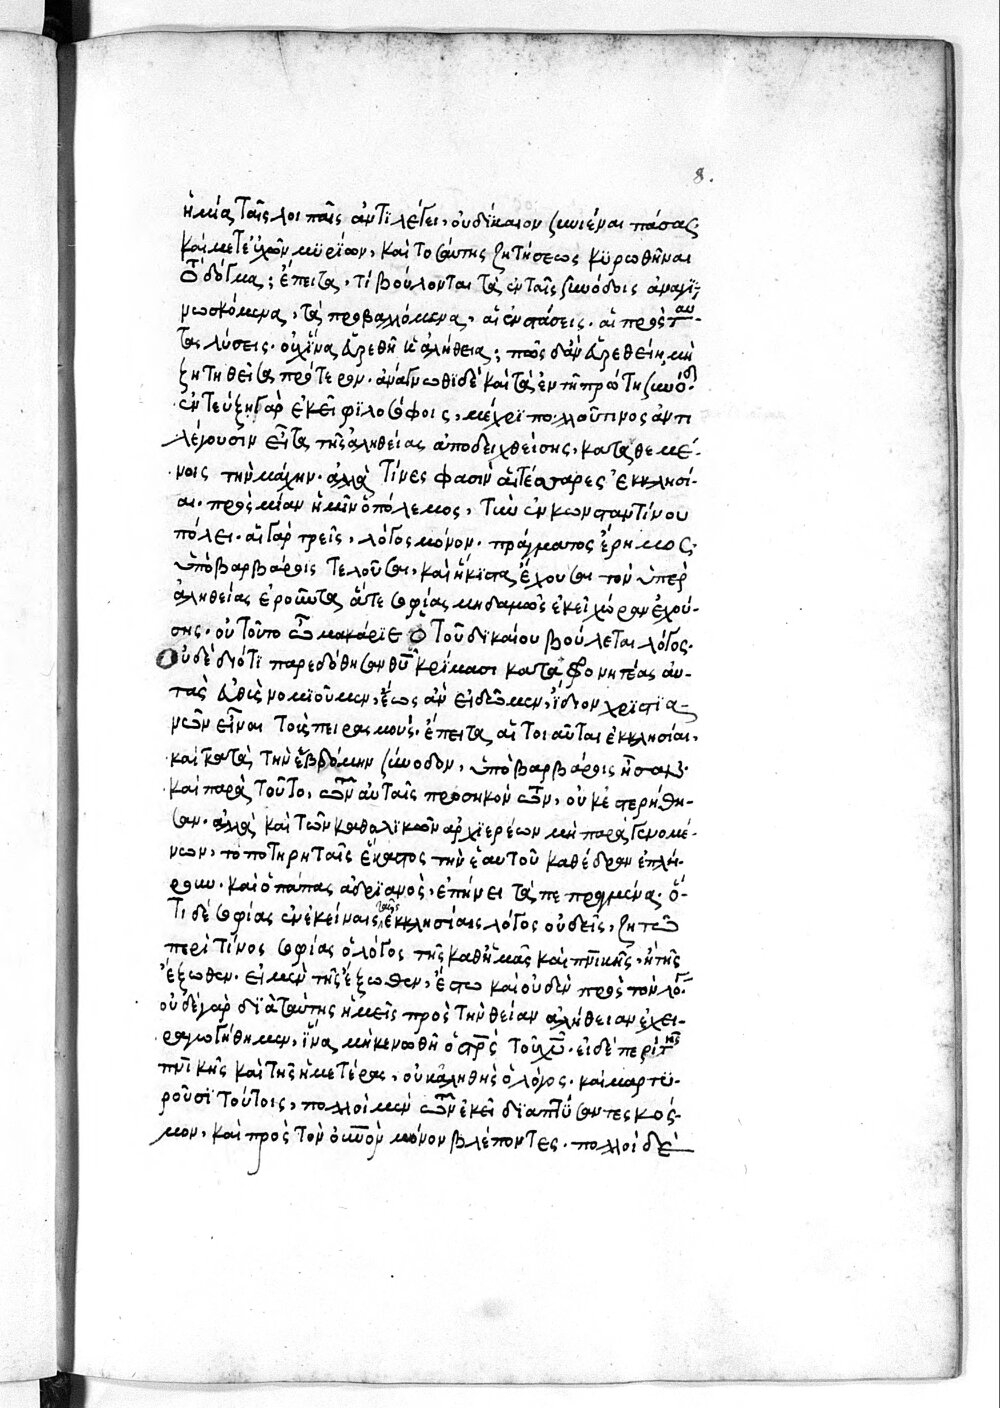 8.
ἡ μία ταῖς λοιπαῖς ἀντιλέγει, οὐ δίκαιον συνιέναι πάσας,
καὶ μετ' ἐχθρῶν μυρίων, καὶ τοσαύτης ζητήσεως κυρωθῆναι
τὸ δόγμα; ἔπειτα, τί βούλονται τὰ ἐν ταῖς συνόδοις ἀναγι-
νωσκόμενα, τὰ προβαλλόμενα, αἱ ἐνστάσεις, αἱ πρὸς ταύ-
τας λύσεις. οὐχ ἵνα εὑρεθῇ ἡ ἀλήθεια; πῶς δ' ἂν εὑρεθείη, μὴ
ζητηθεῖσα πρότερον. ἀνάγνωθι δὲ καὶ τὰ ἐν τῇ πρώτῃ συνόδῳ.
ἐντεύξῃ γὰρ ἐκεῖ φιλοσόφοις, μέχρι πολλοῦ τινος ἀντι
λέγουσιν εἶτα τῆς ἀληθείας ἀποδειχθείσης, καταθεμέ-
νοις τὴν μάχην. ἀλλὰ τίνες φασὶν αἱ τέσσαρες ἐκκλησί-
αι. πρὸς μίαν ἡμῖν ὁ πόλεμος, τὴν ἐν κωνσταντίνου
πόλει. αἱ γὰρ τρεῖς, λόγος μόνον. πράγματος ἔρημος.
ὑπὸ βαρβάροις τελοῦσαι, καὶ ἥκιστα ἔχουσαι τὸν ὑπὲρ
ἀληθείας ἔρωτα ἅτε σοφίας μηδαμῶς ἐκεῖ χώραν ἐχού-
σης. οὐ τοῦτο ὦ μακάριε ὁ τοῦ δικαίου βούλεται λόγος.
Οὐδὲ διότι παρεδόθησαν θυ κρίμασι καταφρονητέας αὐ-
τὰς εὐθὺς νομιοῦμεν, ἕως ἂν εἰδῶμεν, ἴδιον χριστια-
νῶν εἶναι τοὺς πειρασμούς. ἔπειτα αἵ τοι αὗται ἐκκλησίαι,
καὶ κατὰ τὴν ἑβδόμην σύνοδον, ὑπὸ βαρβάροις ἦσαν.
καὶ παρὰ τοῦτο, ὧν αὐταῖς προσῆκον ὧν, οὐκ ἐστερήθη-
σαν. ἀλλὰ καὶ τῶν καθολικῶν ἀρχιερέων μὴ παραγενομέ-
νων, τοποτηρηταῖς ἕκαστος τὴν ἑαυτοῦ καθέδραν ἐπλή-
ρου. καὶ ὁ πάπας ἀδριανός, ἐπῄνει τὰ πεπραγμένα. ὅ-
τι δὲ σοφίας ἐν ἐκείναις ταῖς ἐκκλησίαις λόγος οὐδείς, ζητῶ
περὶ τίνος σοφίας ὁ λόγος τῆς καθ' ἡμᾶς καὶ πνικῆς, ἢ τῆς
ἔξωθεν. εἰ μὲν τῆς ἔξωθεν, ἔστω καὶ οὐδὲν πρὸς τὸν λόγον.
οὐδὲ γὰρ διὰ ταύτης ἡμεῖς πρὸς τὴν θείαν ἀλήθειαν ἐχει-
ραγωγήθημεν, ἵνα μὴ κενωθῇ ὁ στρς τοῦ χυ. εἰ δὲ περὶ τῆς
πνικῆς καὶ τῆς ἡμετέρας, οὐκ ἀληθὴς ὁ λόγος. καὶ μαρτυ-
ροῦσι τούτοις, πολλοὶ μὲν ὧν ἐκεῖ διαπτύσαντες κόσ-
μον, καὶ πρὸς τὸν οὐνὸν μόνον βλέποντες. πολλοὶ δὲ